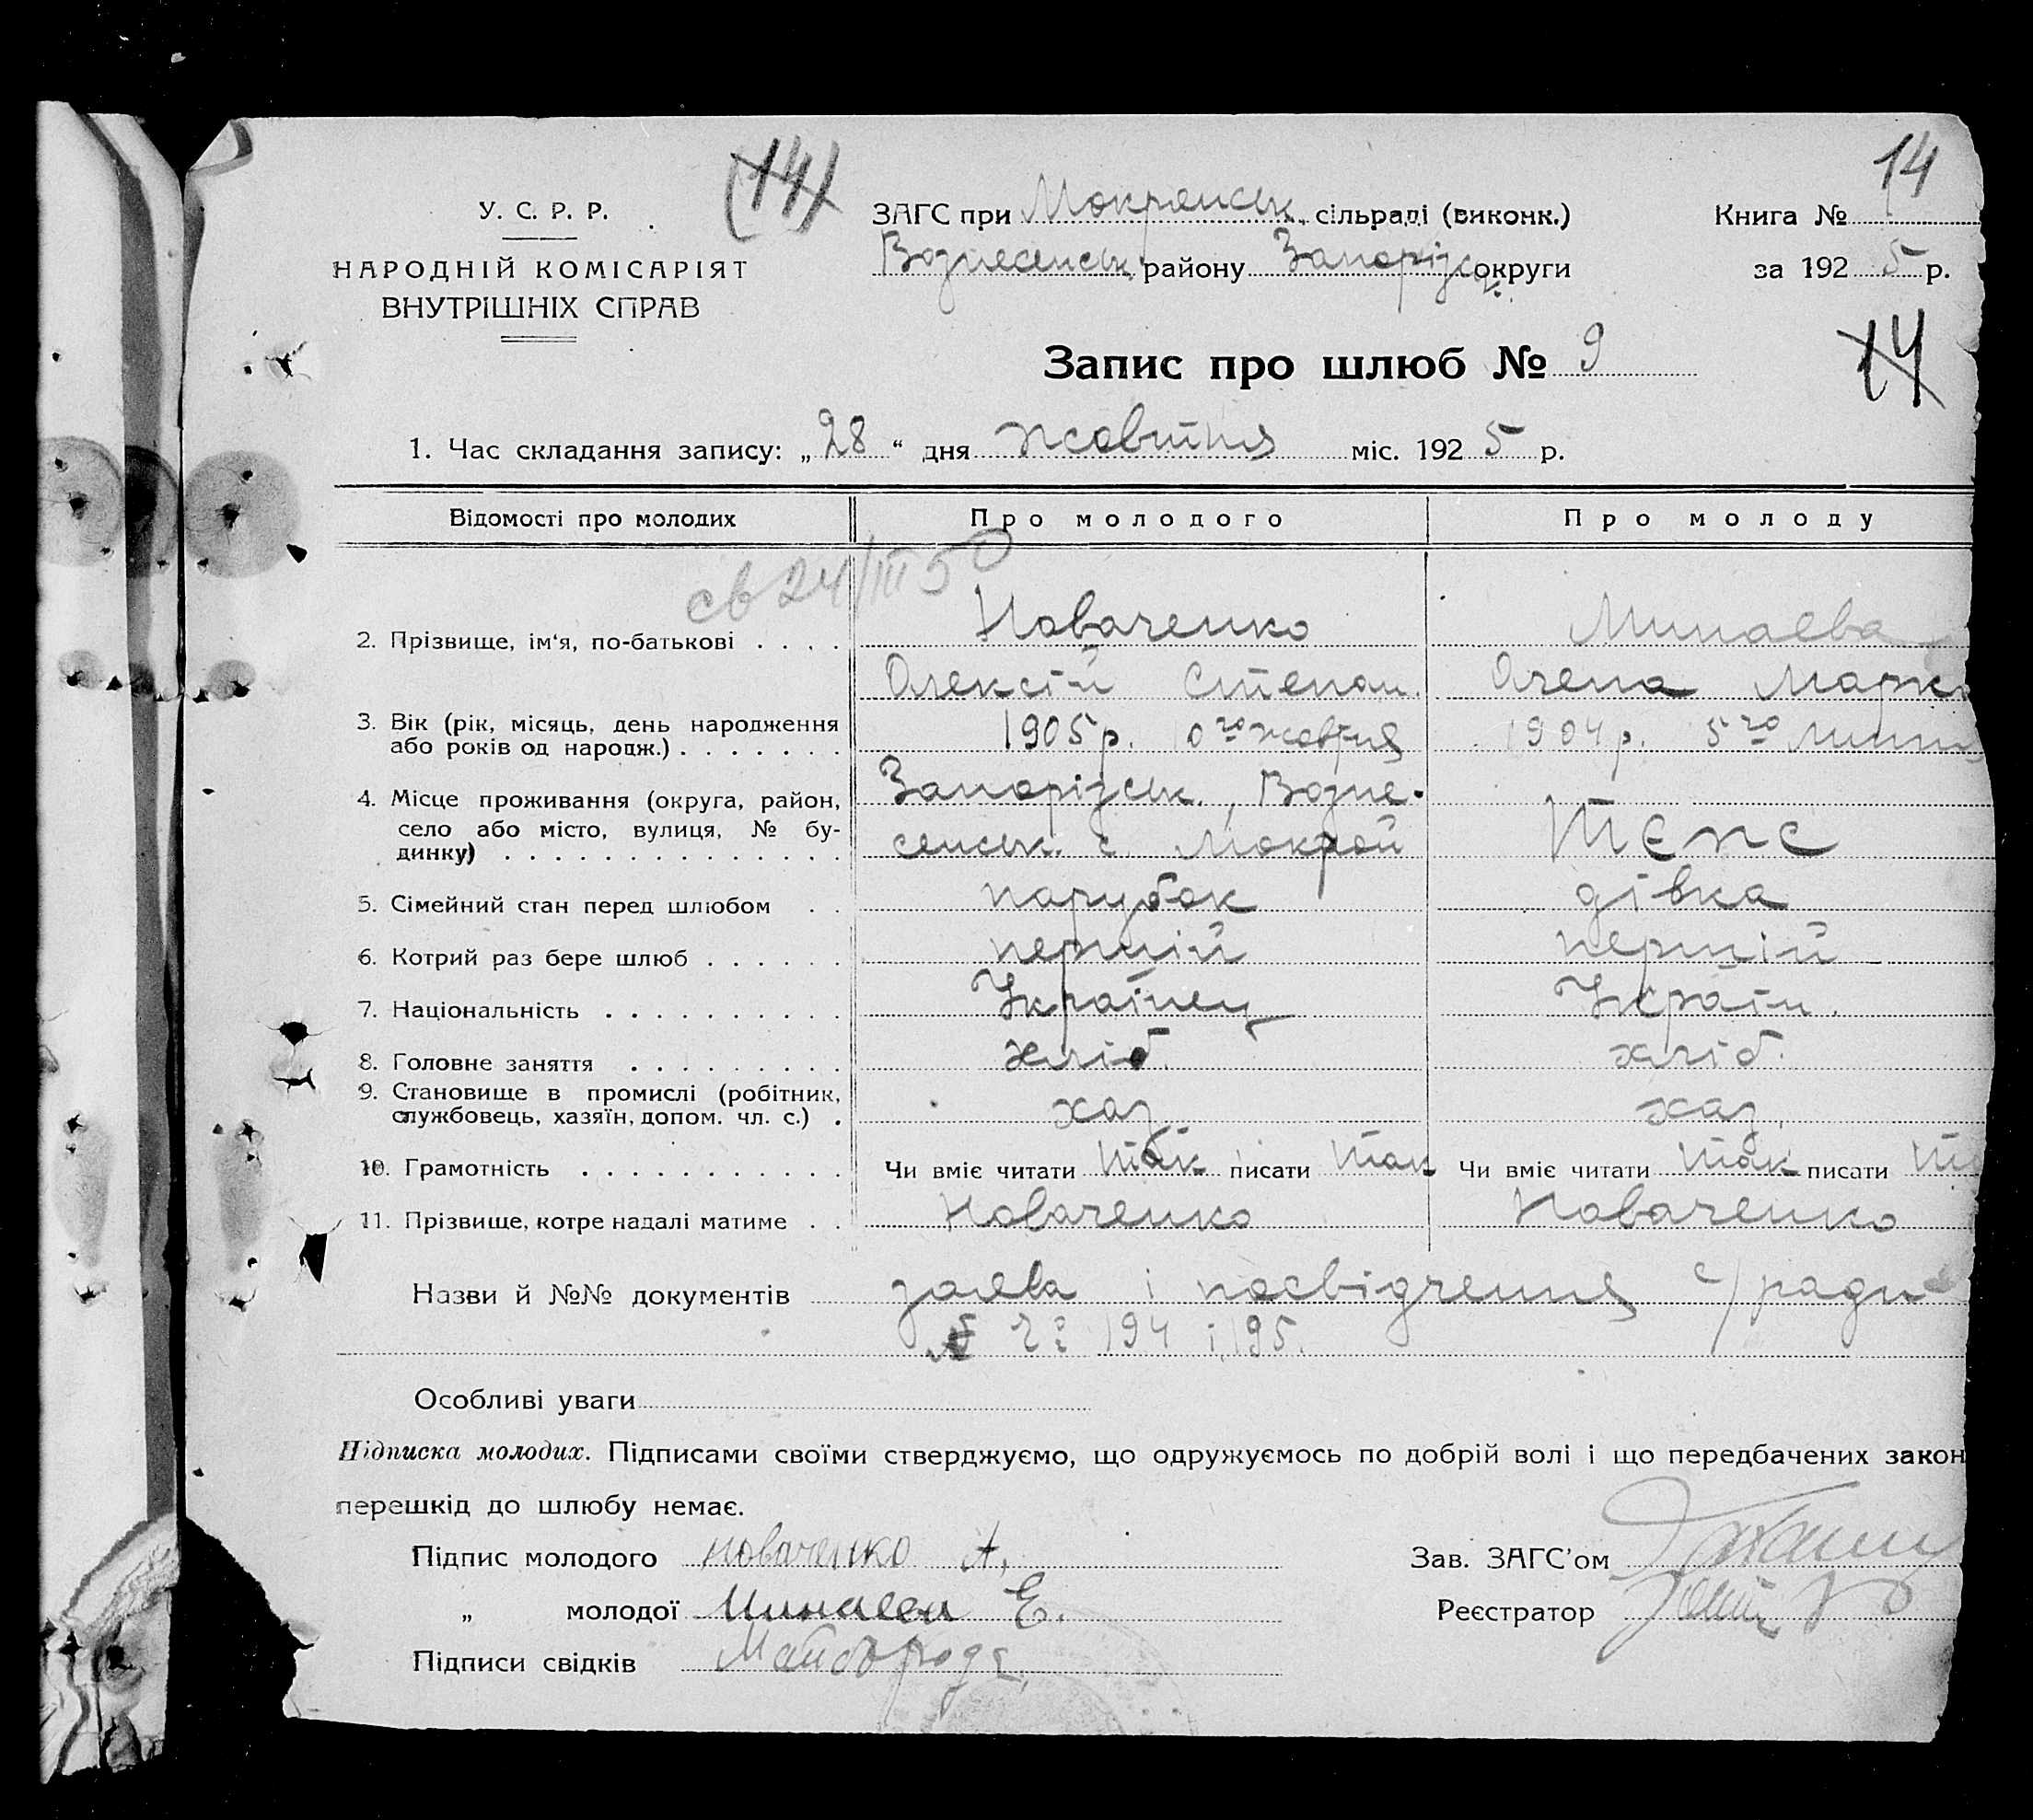 14
(14)
У. С. Р. Р.
НАРОДНІЙ КОМІСАРІЯТ
ВНУТРІШНІХ СПРАВ
ЗАГС при Мокрянськ. сільраді (виконк.)
Вознесенськ району Запорізьк округи
Книга №
за 1925 р.
Запис про шлюб № 9
14
1. Час складання запису: „28“ дня жовтня міс. 1925 р.
Відомості про молодих Про молодого Про молоду
св 24/III 50
2. Прізвище, ім'я, по-батькові . . . . Новаченко Минаева
Олексій Степан. Олена Марк
3. Вік (рік, місяць, день народження
або років од народж.) . . . . . . . 1905 р. 10го жовтня 1904 р. 5го Липн
4. Місце проживання (округа, район,
село або місто, вулиця, № бу-
динку) . . . . . . . . . . . . . .
Запорізськ., Возне-
сенськ. с. Мокрой
5. Сімейний стан перед шлюбом . . парубок дівка
6. Котрий раз бере шлюб . . . . . . перший перший
7. Національність . . . . . . . . . . Українец Україн.
8. Головне заняття . . . . . . . . . хліб. хліб.
9. Становище в промислі (робітник,
службовець, хазяїн, допом. чл. с.) . хаз. хаз.
10. Грамотність . . . . . . . . . . . Чи вміє читати так писати так Чи вміє читати так писати
11. Прізвище, котре надалі матиме . . Новаченко Новаченко
Назви й №№ документів заява і посвідчення с/ради
194 і 195.
Особливі уваги
Підписка молодих. Підписами своїми стверджуємо, що одружуємось по добрій волі і що передбачених закон
перешкід до шлюбу немає.
Підпис молодого Новаченко А. Зав. ЗАГС'ом
„ молодої Минаева Е. Реєстратор
Підписи свідків Майборода